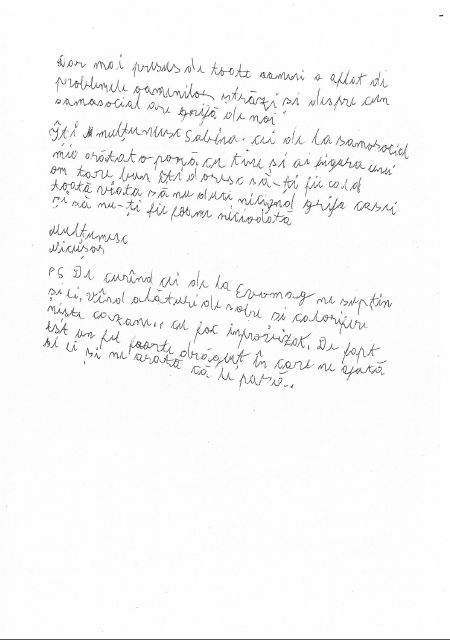 Dar mai presus de toate oameni a aflat di
problemele oamenilor străzi si despre cum
samasocial are grijă de noi
Îți mulțumesc Sabina. cei de la samosocial
mio arătato ponă cu tine și ai sigura unui
om tare bun îți doresc să-ți fie cald
toată viata să nu duci niciynd grifa casei
și să nu-ți fie foame niciodată
Multumesc
Nicușor
PS De curînd cei de la Evomag ne susțin
si ei, vînd alături de sobe si calorifere
niste cazane cu foc improvizat. De fapt
est un fel foarte drăguț în care ne ajută
si ei și ne arată că le pasă..